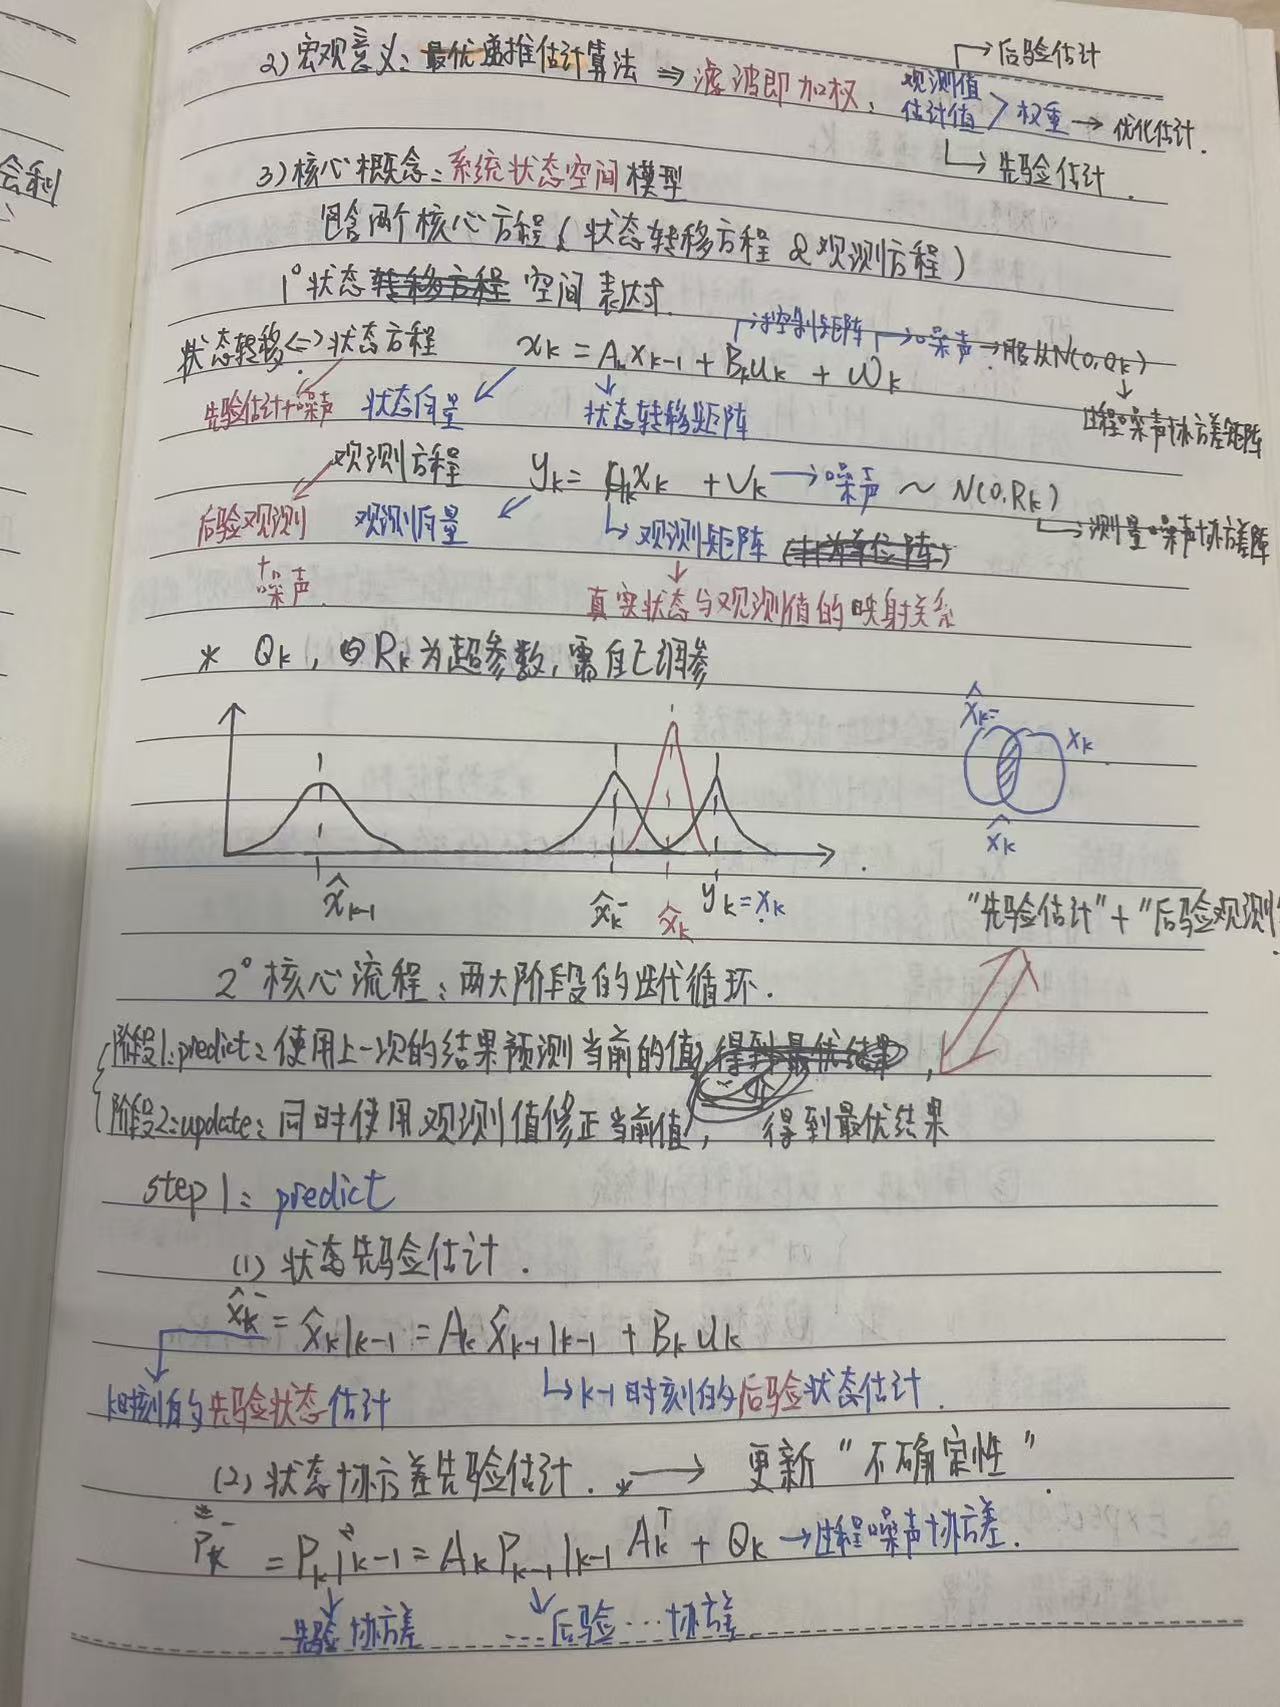 会利
2) 宏观意义: 最优递推估计算法 ⇒ 滤波即加权: 观测值 估计值 > 权重 → 优化估计.
→ 后验估计
↳ 先验估计.
3) 核心概念: 系统状态空间模型
包含两个核心方程 (状态转移方程 & 观测方程)
1° 状态转移方程 空间表达式
控制矩阵 → 噪声 → 服从N(0,Qk)
状态转移 <-> 状态方程 xk = Ak xk-1 + Bk uk + Wk
先验估计+噪声 状态向量 状态转移矩阵 过程噪声协方差矩阵
观测方程 yk = Hk xk + Vk → 噪声 ~ N(0,Rk)
后验观测 + 噪声 观测向量 ↳ 观测矩阵 → 测量噪声协方差阵
真实状态与观测值的映射关系
* Qk, Rk 为超参数, 需自己调参
x̂k⁻ xk
x̂k
x̂k-1 x̂k⁻ x̂k yk = xk
"先验估计" + "后验观测"
2° 核心流程: 两大阶段的迭代循环.
阶段1: predict: 使用上一次的结果预测当前的值, 得到最优结果,
阶段2: update: 同时使用观测值修正当前值, 得到最优结果
step 1: predict
(1) 状态先验估计.
x̂k⁻ = x̂k|k-1 = Ak x̂k-1|k-1 + Bk uk
k时刻的先验状态估计 ↳ k-1时刻的后验状态估计.
(2) 状态协方差先验估计. * → 更新 "不确定性".
Pk⁻ = Pk|k-1 = Ak Pk-1|k-1 Akᵀ + Qk → 过程噪声协方差.
先验协方差 ... 后验 ... 协方差